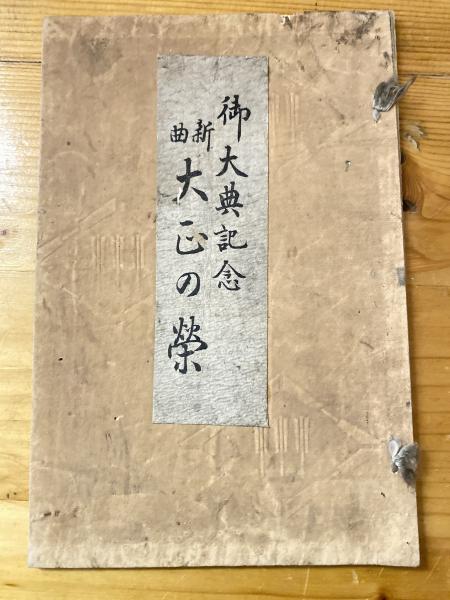 御大典記念
新曲
大正の榮